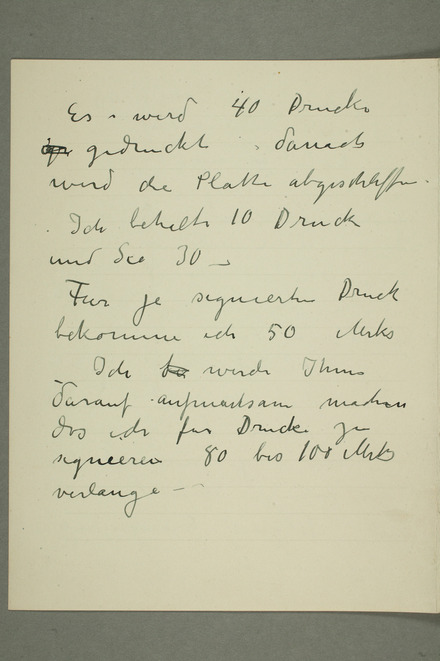 Es wird 40 Drucke
gedruckt. danach
wird die Platte abgeschliffen.
Ich behalte 10 Drucke
und Sie 30 —
Für je signierten Druck
bekomme ich 50 Mrks
Ich werde Ihnen
darauf aufmerksam machen
das ich für Drucke zu
signieren 80 bis 100 Mrks
verlange —